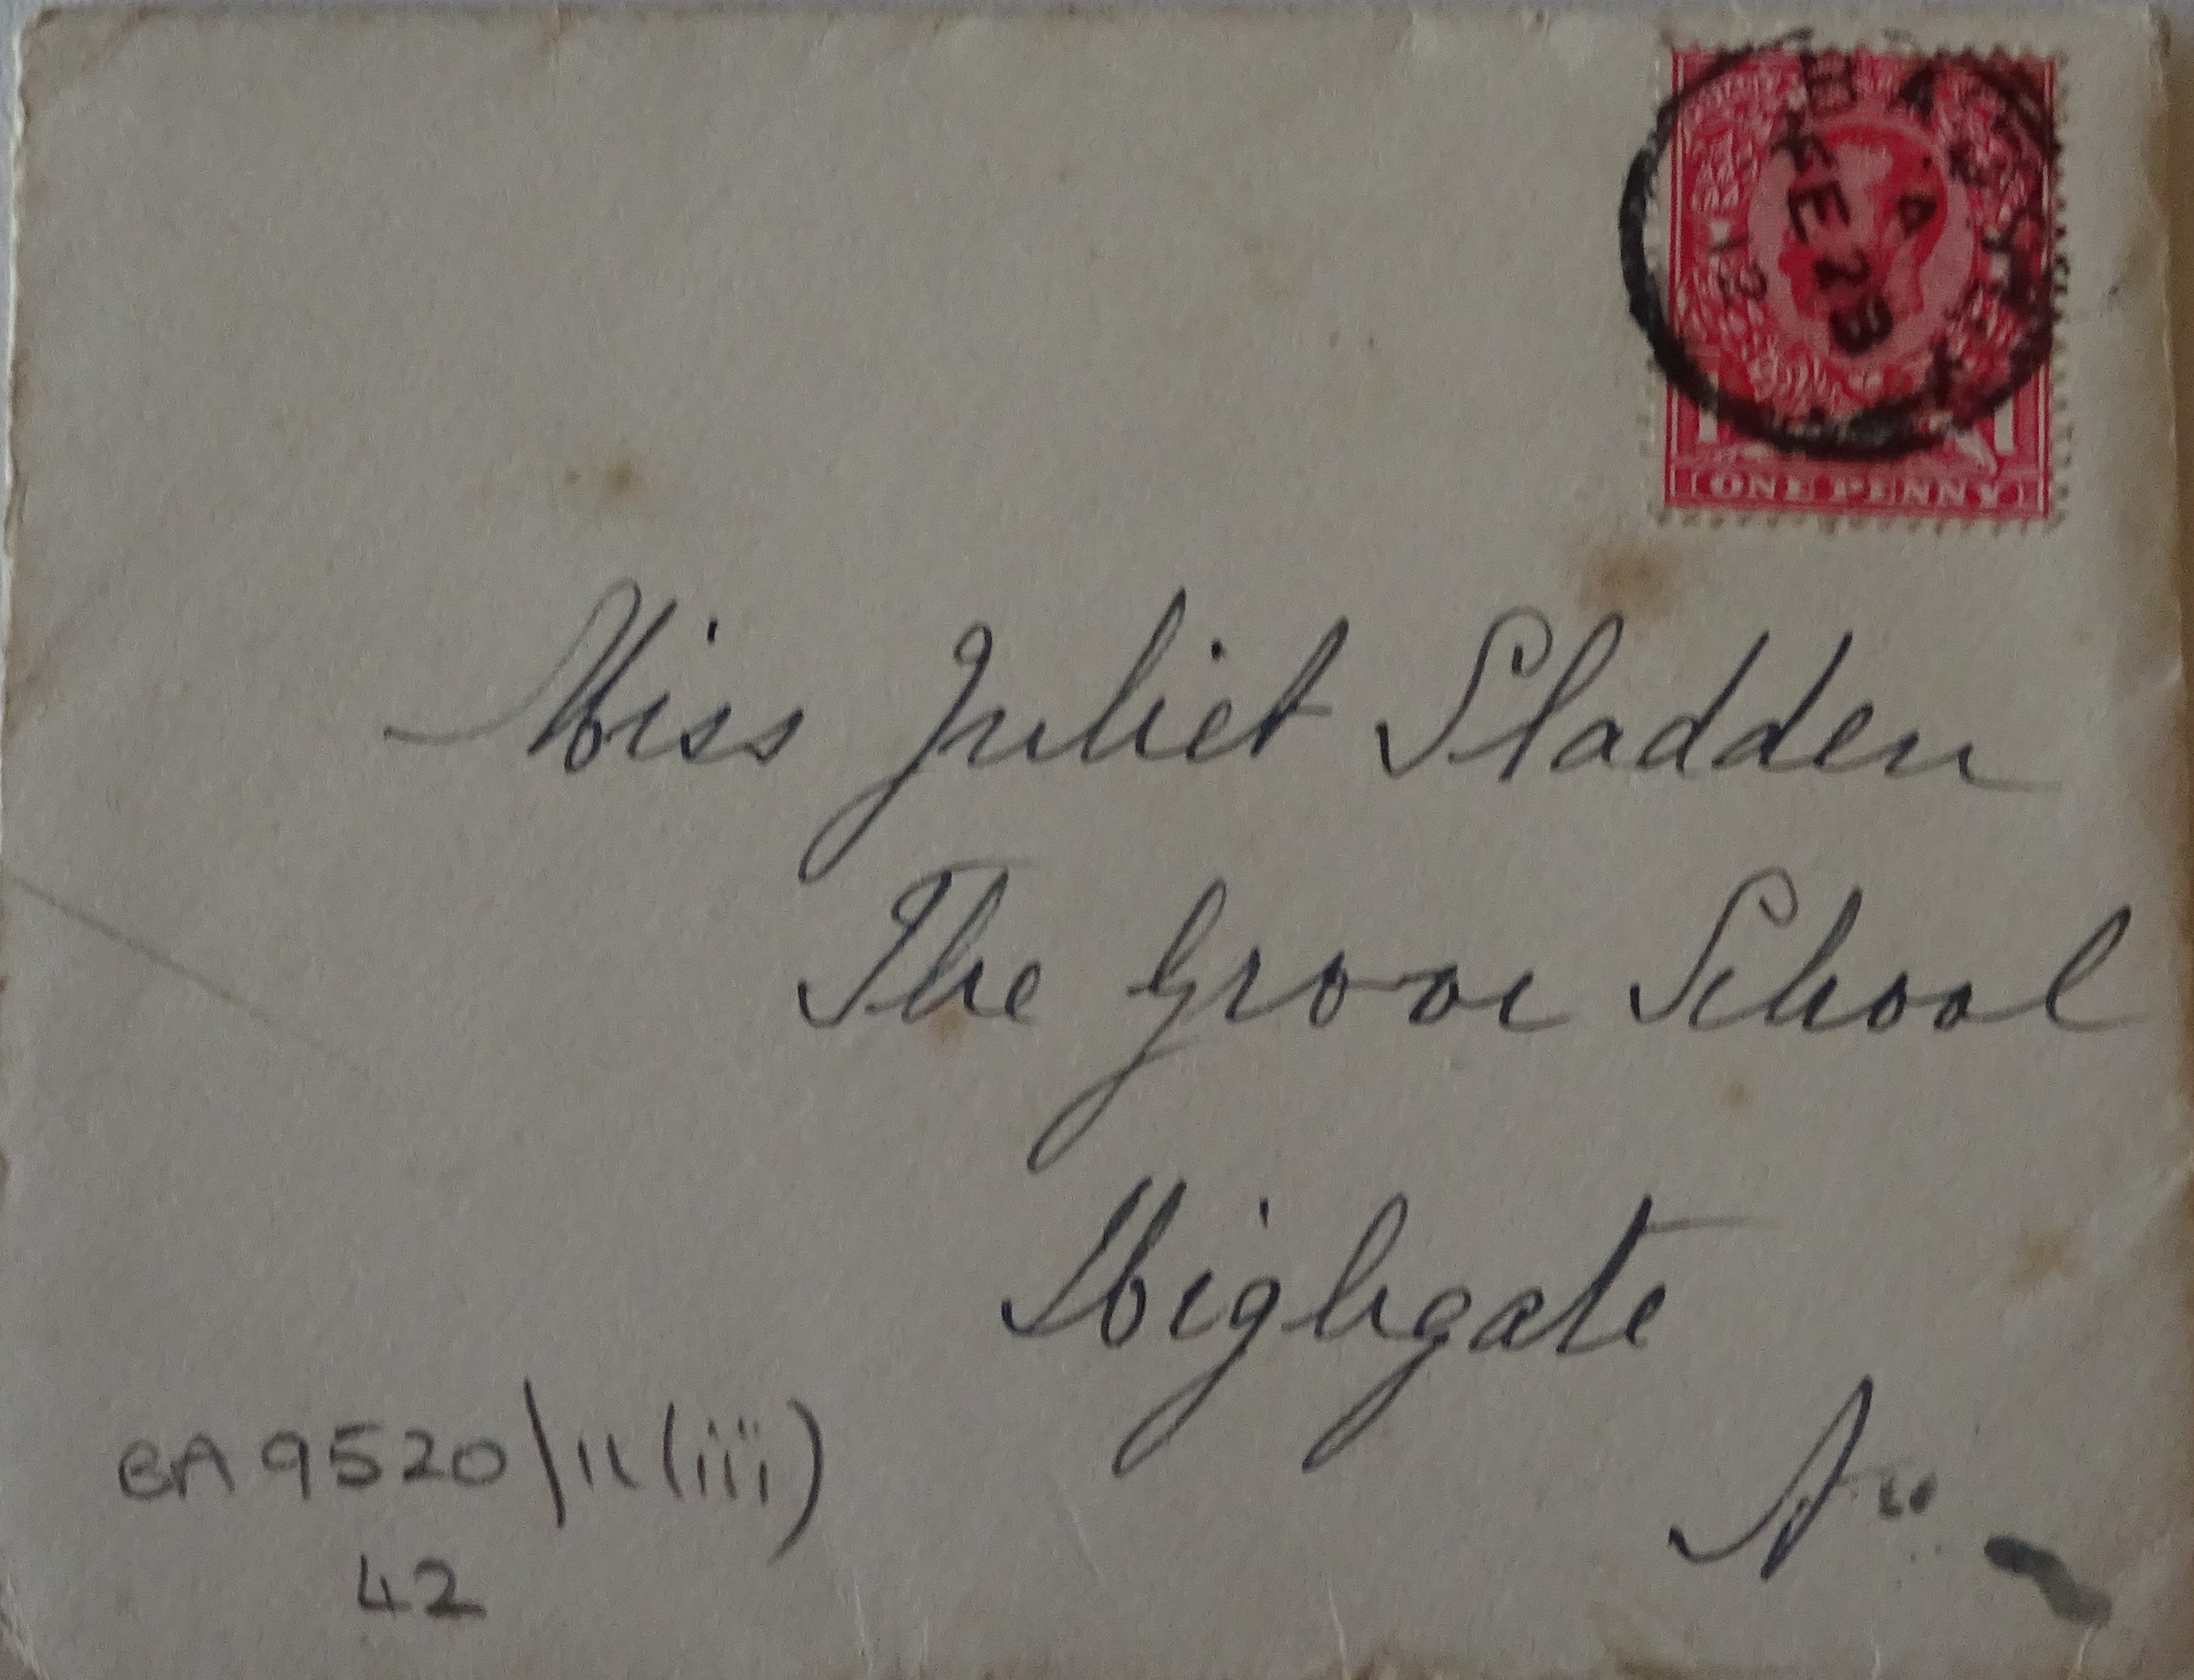 A
FE 29
12
ONE PENNY
Miss Juliet Sladden
The Grove School
Highgate
N.
BA 9520/11(iii)
42